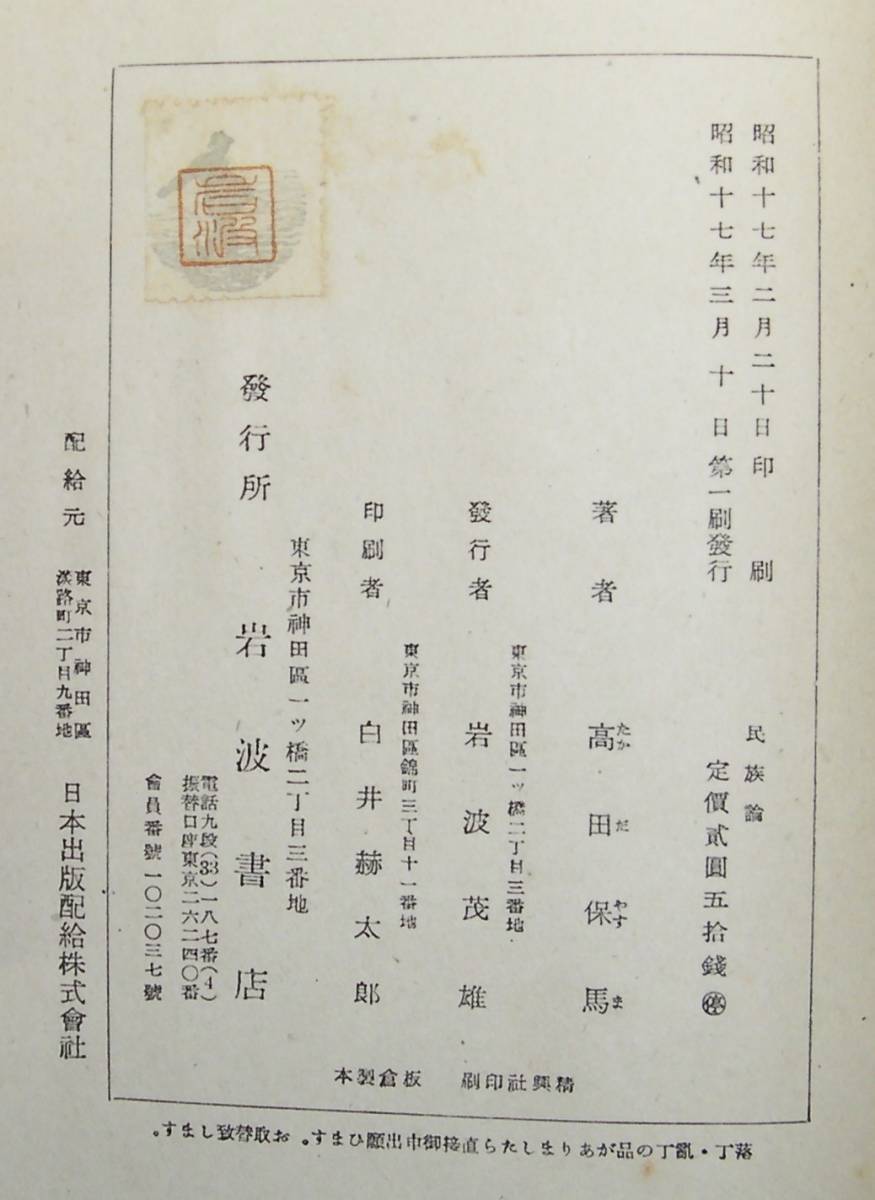 昭和十七年二月二十日印刷
昭和十七年三月十日第一刷發行
民族論
定價貳圓五拾錢㊡
著者
高田保馬
たかだやすま
東京市神田區一ツ橋二丁目三番地
發行者
岩波茂雄
東京市神田區錦町三丁目十一番地
印刷者
白井赫太郎
東京市神田區一ッ橋二丁目三番地
發行所
岩波書店
電話九段(33)一八七番(4)
振替口座東京二六二四〇番
會員番號一〇二〇三七號
岩波
精興社印刷 板倉製本
配給元
東京市神田區
淡路町二丁目九番地
日本出版配給株式會社
落丁・亂丁の品がありましたら直接御申出願ひます。お取替致します。